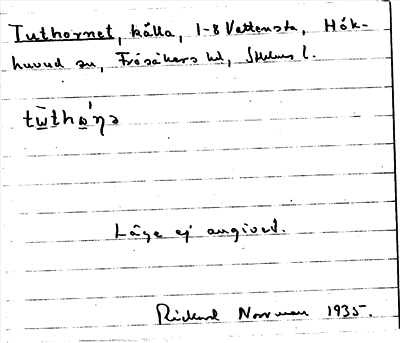 Tuthornet, källa, 1-8 Vettensta, Hök-
huvud sn, Frösåkers hd, Sthlms l.
tùthǫ́ŋə
Läge ej angivet.
Rickard Norrman 1935.